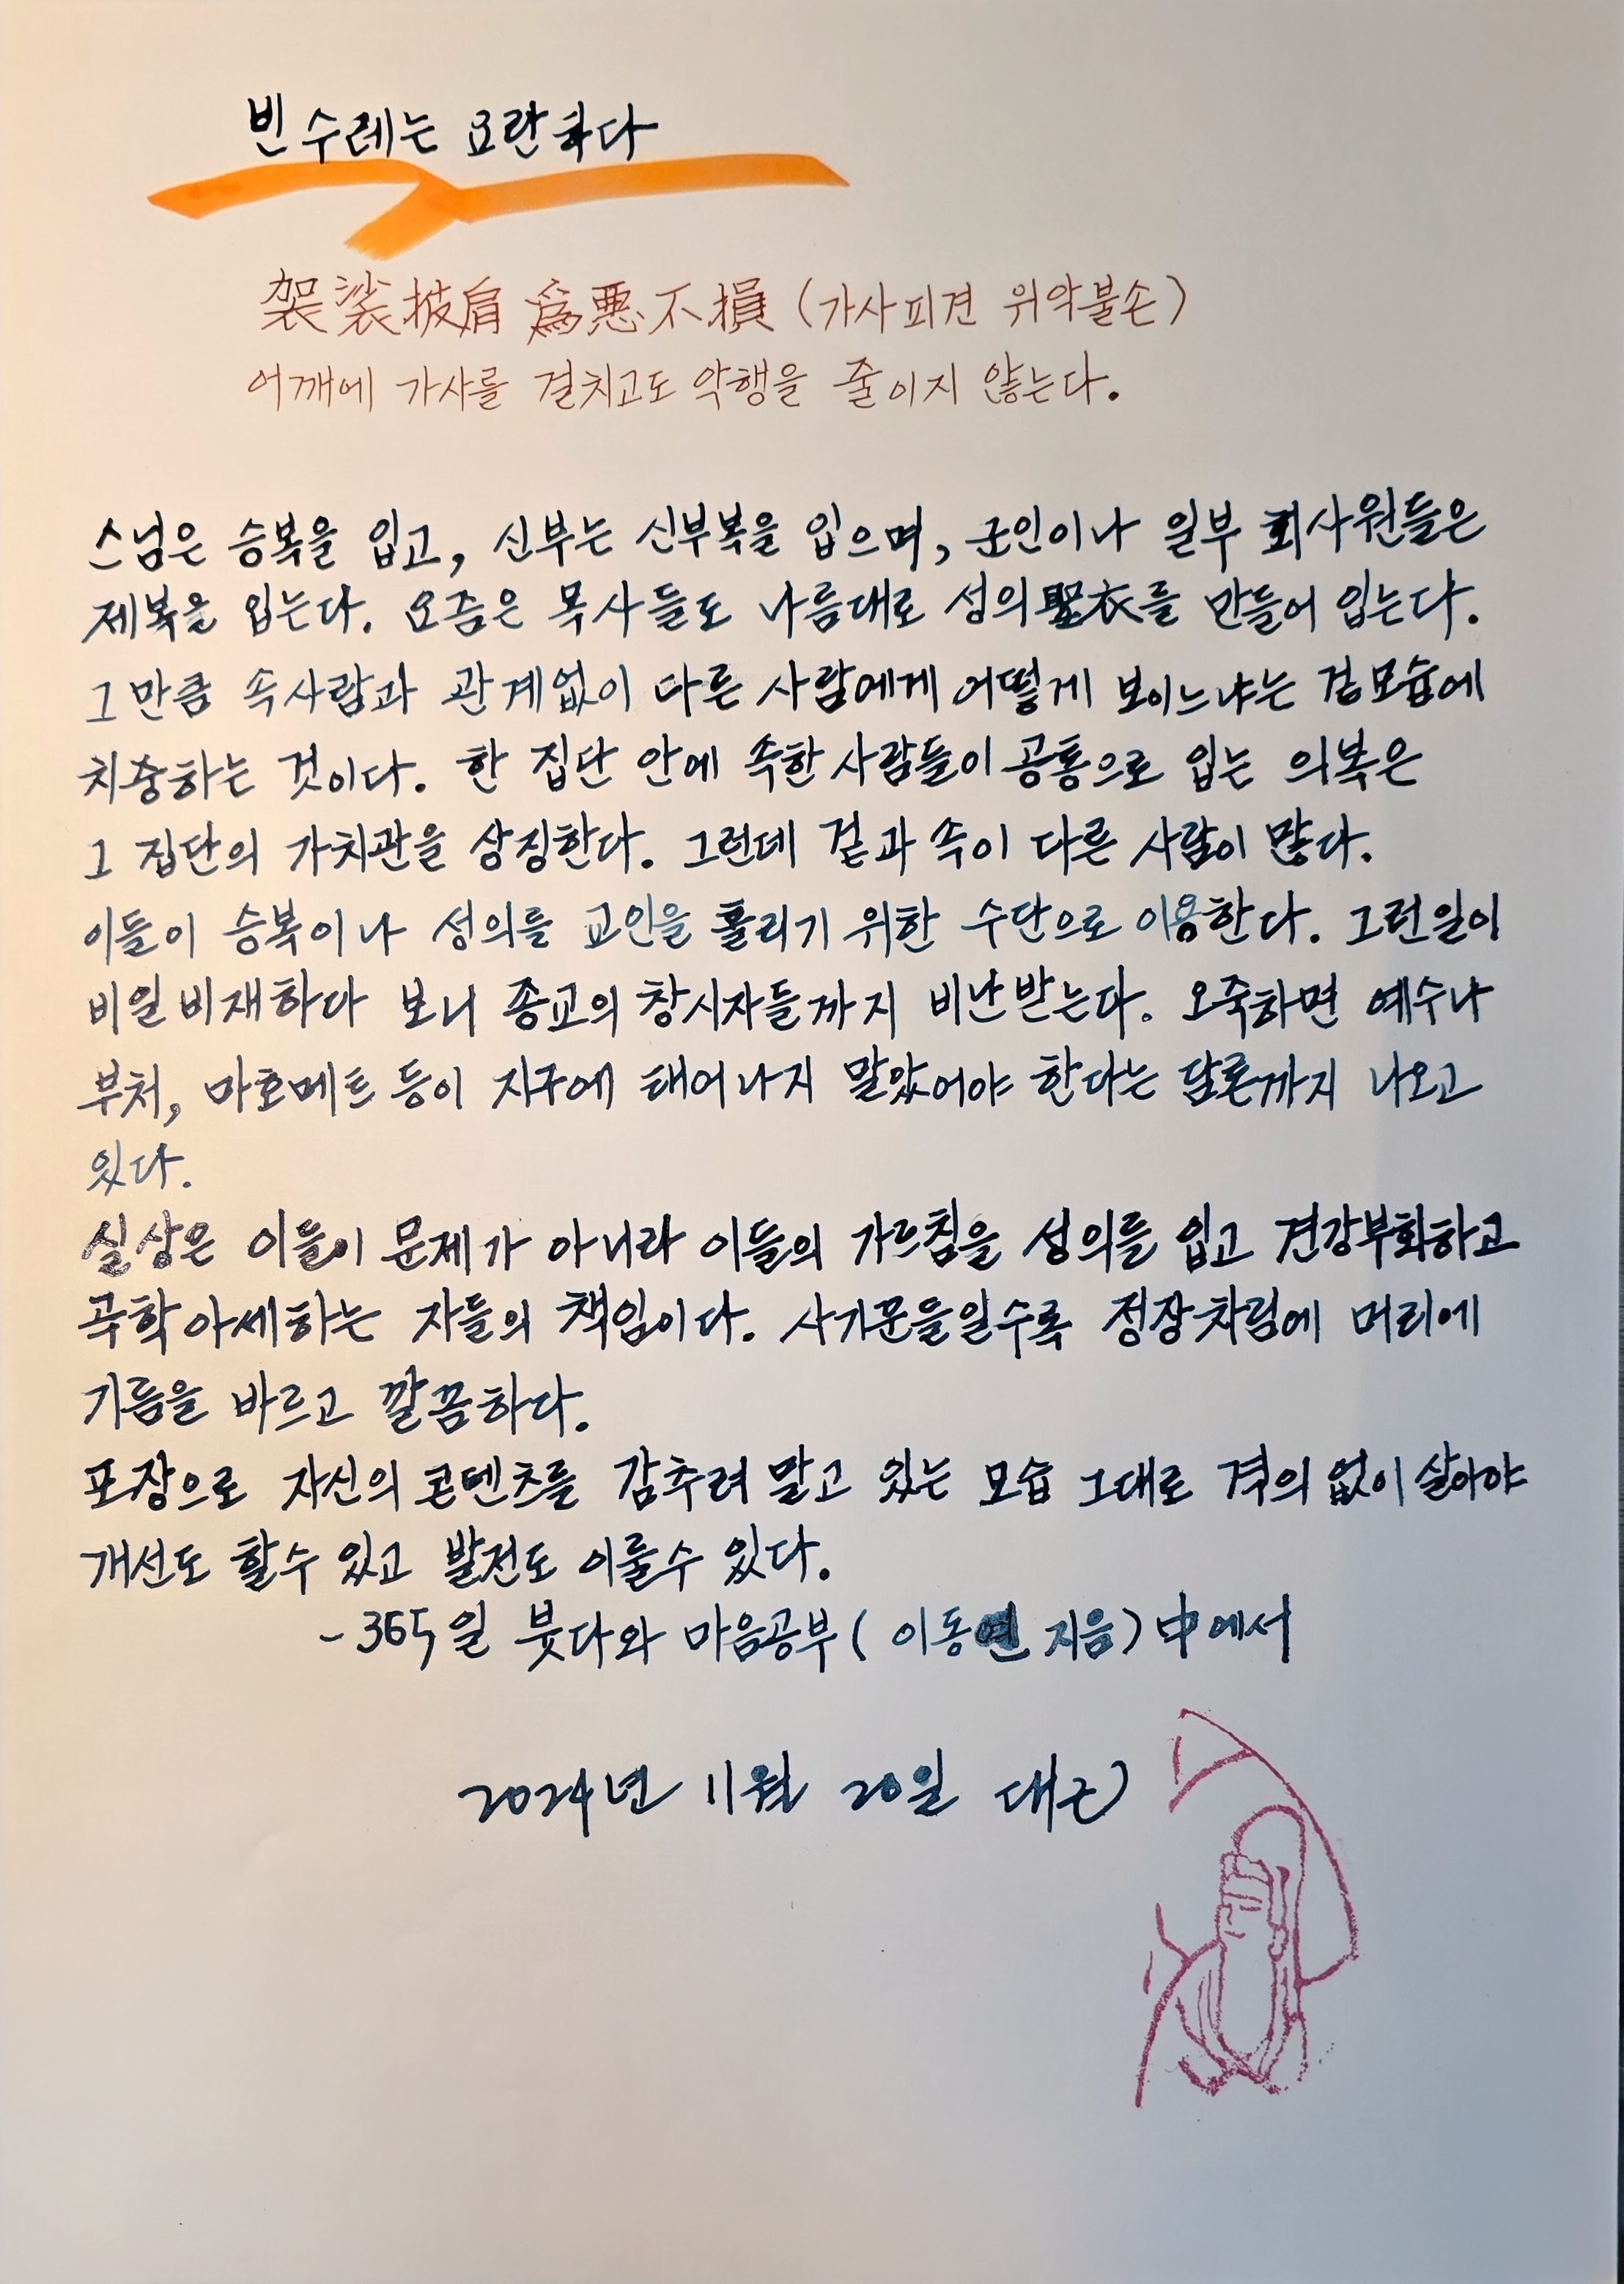 빈 수레는 요란하다
袈裟披肩 爲惡不損 (가사피견 위악불손)
어깨에 가사를 걸치고도 악행을 줄이지 않는다.
스님은 승복을 입고, 신부는 신부복을 입으며, 군인이나 일부 회사원들은
제복을 입는다. 요즘은 목사들도 나름대로 성의聖衣를 만들어 입는다.
그만큼 속사람과 관계없이 다른 사람에게 어떻게 보이느냐는 겉모습에
치중하는 것이다. 한 집단 안에 속한 사람들이 공통으로 입는 의복은
그 집단의 가치관을 상징한다. 그런데 겉과 속이 다른 사람이 많다.
이들이 승복이나 성의를 교인을 홀리기 위한 수단으로 이용한다. 그런일이
비일비재하다 보니 종교의 창시자들까지 비난받는다. 오죽하면 예수나
부처, 마호메트 등이 지구에 태어나지 말았어야 한다는 담론까지 나오고
있다.
실상은 이들이 문제가 아니라 이들의 가르침을 성의를 입고 견강부회하고
곡학아세하는 자들의 책임이다. 사기꾼들일수록 정장차림에 머리에
기름을 바르고 깔끔하다.
포장으로 자신의 콘텐츠를 감추려 말고 있는 모습 그대로 격의 없이 살아야
개선도 할수 있고 발전도 이룰수 있다.
-365일 붓다와 마음공부 (이동연 지음) 中에서
2024년 11월 20일 대근